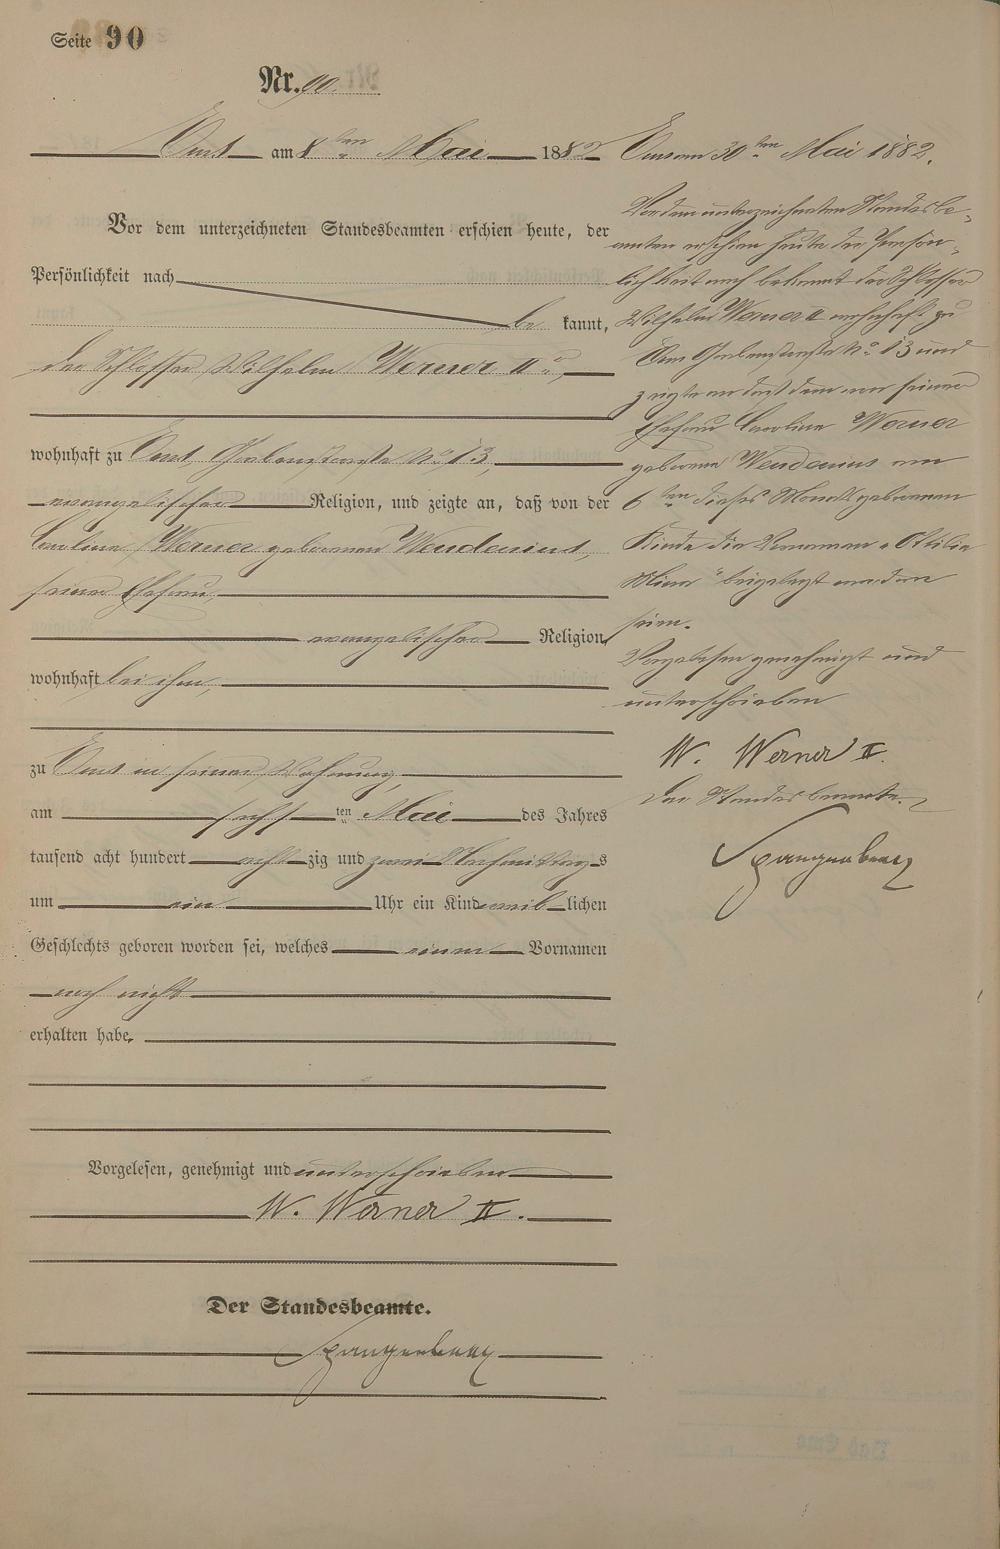 Seite 90
Nr. 90.
Ems am 8ten Mai 1882
Vor dem unterzeichneten Standesbeamten erschien heute, der
Persönlichkeit nach
be kannt,
der Schlosser Wilhelm Werner II
wohnhaft zu Ems, Grabenstraße No 13,
evangelischer Religion, und zeigte an, daß von der
Caroline Werner geborenen Wendenius,
seiner Ehefrau,
evangelischer Religion,
wohnhaft bei ihm,
zu Ems in seiner Wohnung,
am sechsten Mai des Jahres
tausend acht hundert achtzig und zwei Nachmittags
um ein Uhr ein Kind weiblichen
Geschlechts geboren worden sei, welches einen Vornamen
noch nicht
erhalten habe.
Vorgelesen, genehmigt und unterschrieben
W. Werner II.
Der Standesbeamte.
Spangenberg
Ems am 30ten Mai 1882.
Vor dem unterzeichneten Standesbe-
amten erschien heute der Persön-
lichkeit nach bekannt der Schlosser
Wilhelm Werner II wohnhaft zu
Ems Grabenstraße No 13 und
zeigte an daß dem von seiner
Ehefrau Caroline Werner
geborene Wendenius am
6ten dieses Monats geborenen
Kinde die Vornamen „Ottilie
Mina" beigelegt worden
seien.
Vorgelesen genehmigt und
unterschrieben
W. Werner II.
Der Standesbeamte.
Spangenberg